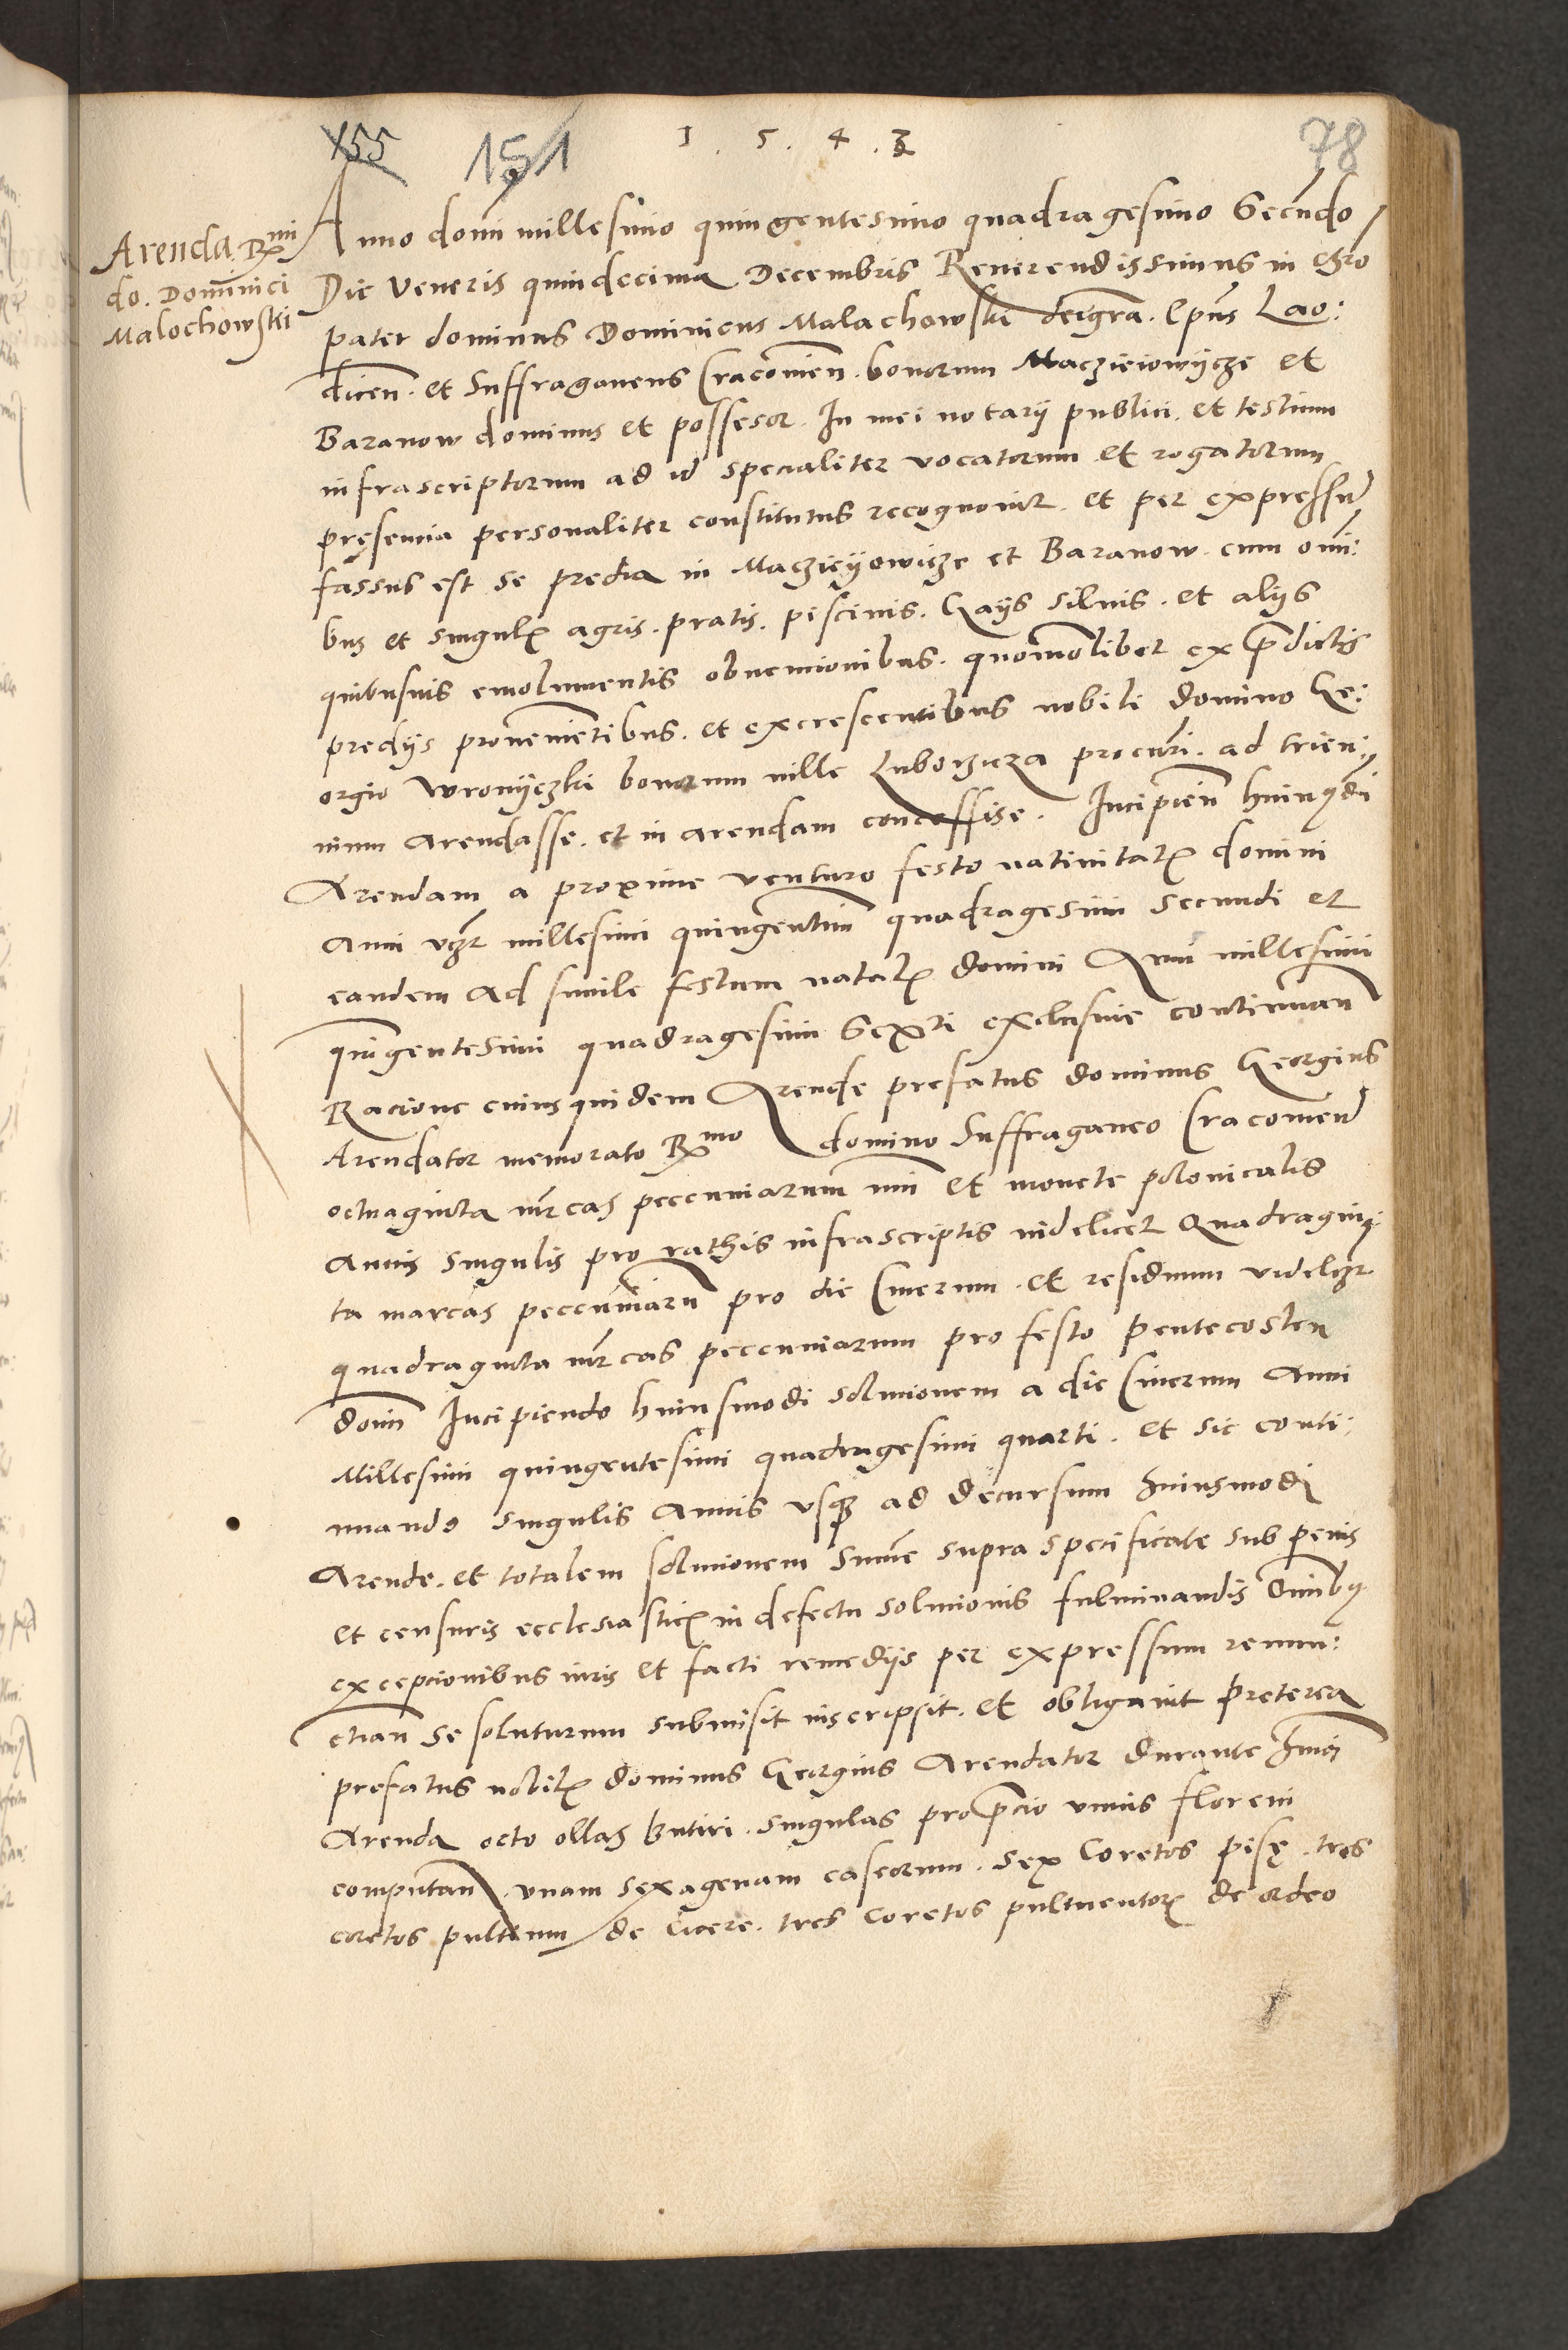 155 151 1 . 5 . 4 . 3 78
Arenda Rmi
do. Dominici
Malochowski
Anno domi millesimo quingentesimo quadragesimo Secundo
Die Veneris quindecima Decembris Reverendissimus in chro
pater dominus Dominicus Malachowski dei gra. Epus Lao:
dicen. et Suffraganeus Cracovien. bonorum Maczieiowycze et
Baranow dominus et possesor. In mei notarij publici. et testium
infrascriptorum ad id specialiter vocatorum et rogatorum
pręsencia personaliter constitutus recognovit. et per expressu
fassus est se predia in Macziejowicze et Baranow. cum omi:
bus et singulis agris. pratis. piscinis. Gays silvis. et alijs
quibusuis emolumentis obvencionibus. quomolibet ex predictis
predijs provenietibus. et excrescentibus nobili domino Ge:
orgio Wronyczki bonorum ville Luborzicza procuri. ad trien:
nium Arendasse. et in arendam concessise. Incipien huiusdi
Arendam a proxime venturo festo nativitatis domini
Anni vz millesimi quingentimi quadragesimi secundi et
eandem ad simile festum natalis domini Anni millesimi
quingentesimi quadragesimi Sexti exclusive continuan
Racione cuius quidem Arende prefatus dominus Georgius
Arendator memorato Rmo domino Suffraganeo Cracovien
octuaginta mrcas peccuniarum nui et monete polonicalis
Annis singulis pro rathis infrascriptis videlicet Quadragin:
ta marcas peccuniaru pro die Cinerum. et residuum videlz
quadraginta mrcas peccuniarum pro festo pentecosten
domi Incipiendo huiusmodi solucionem a die Cinerum Anni
Millesimi quingentesimi quadragesimi quarti. et sic conti:
nuando singulis Annis usq ad decursum huiusmodi
Arende. et totalem solucionem Sume supra specificate sub penis
et censuris ecclesiasticis in defectu solucionis fulminandis Omibus
excepcionibus iuris et facti remedijs per expressum renun:
ctian se soluturum submisit inscripsit. et obligavit Preterea
prefatus nobilis dominus Georgius Arendator durante huiusmodi
Arenda octo ollas butiri. singulas pro precio unius floreni
computan. unam sexagenam caseorum. sex Coretos pisę. tres
coretos pultium de Cicere. tres coretos pulmentorum de ordeo